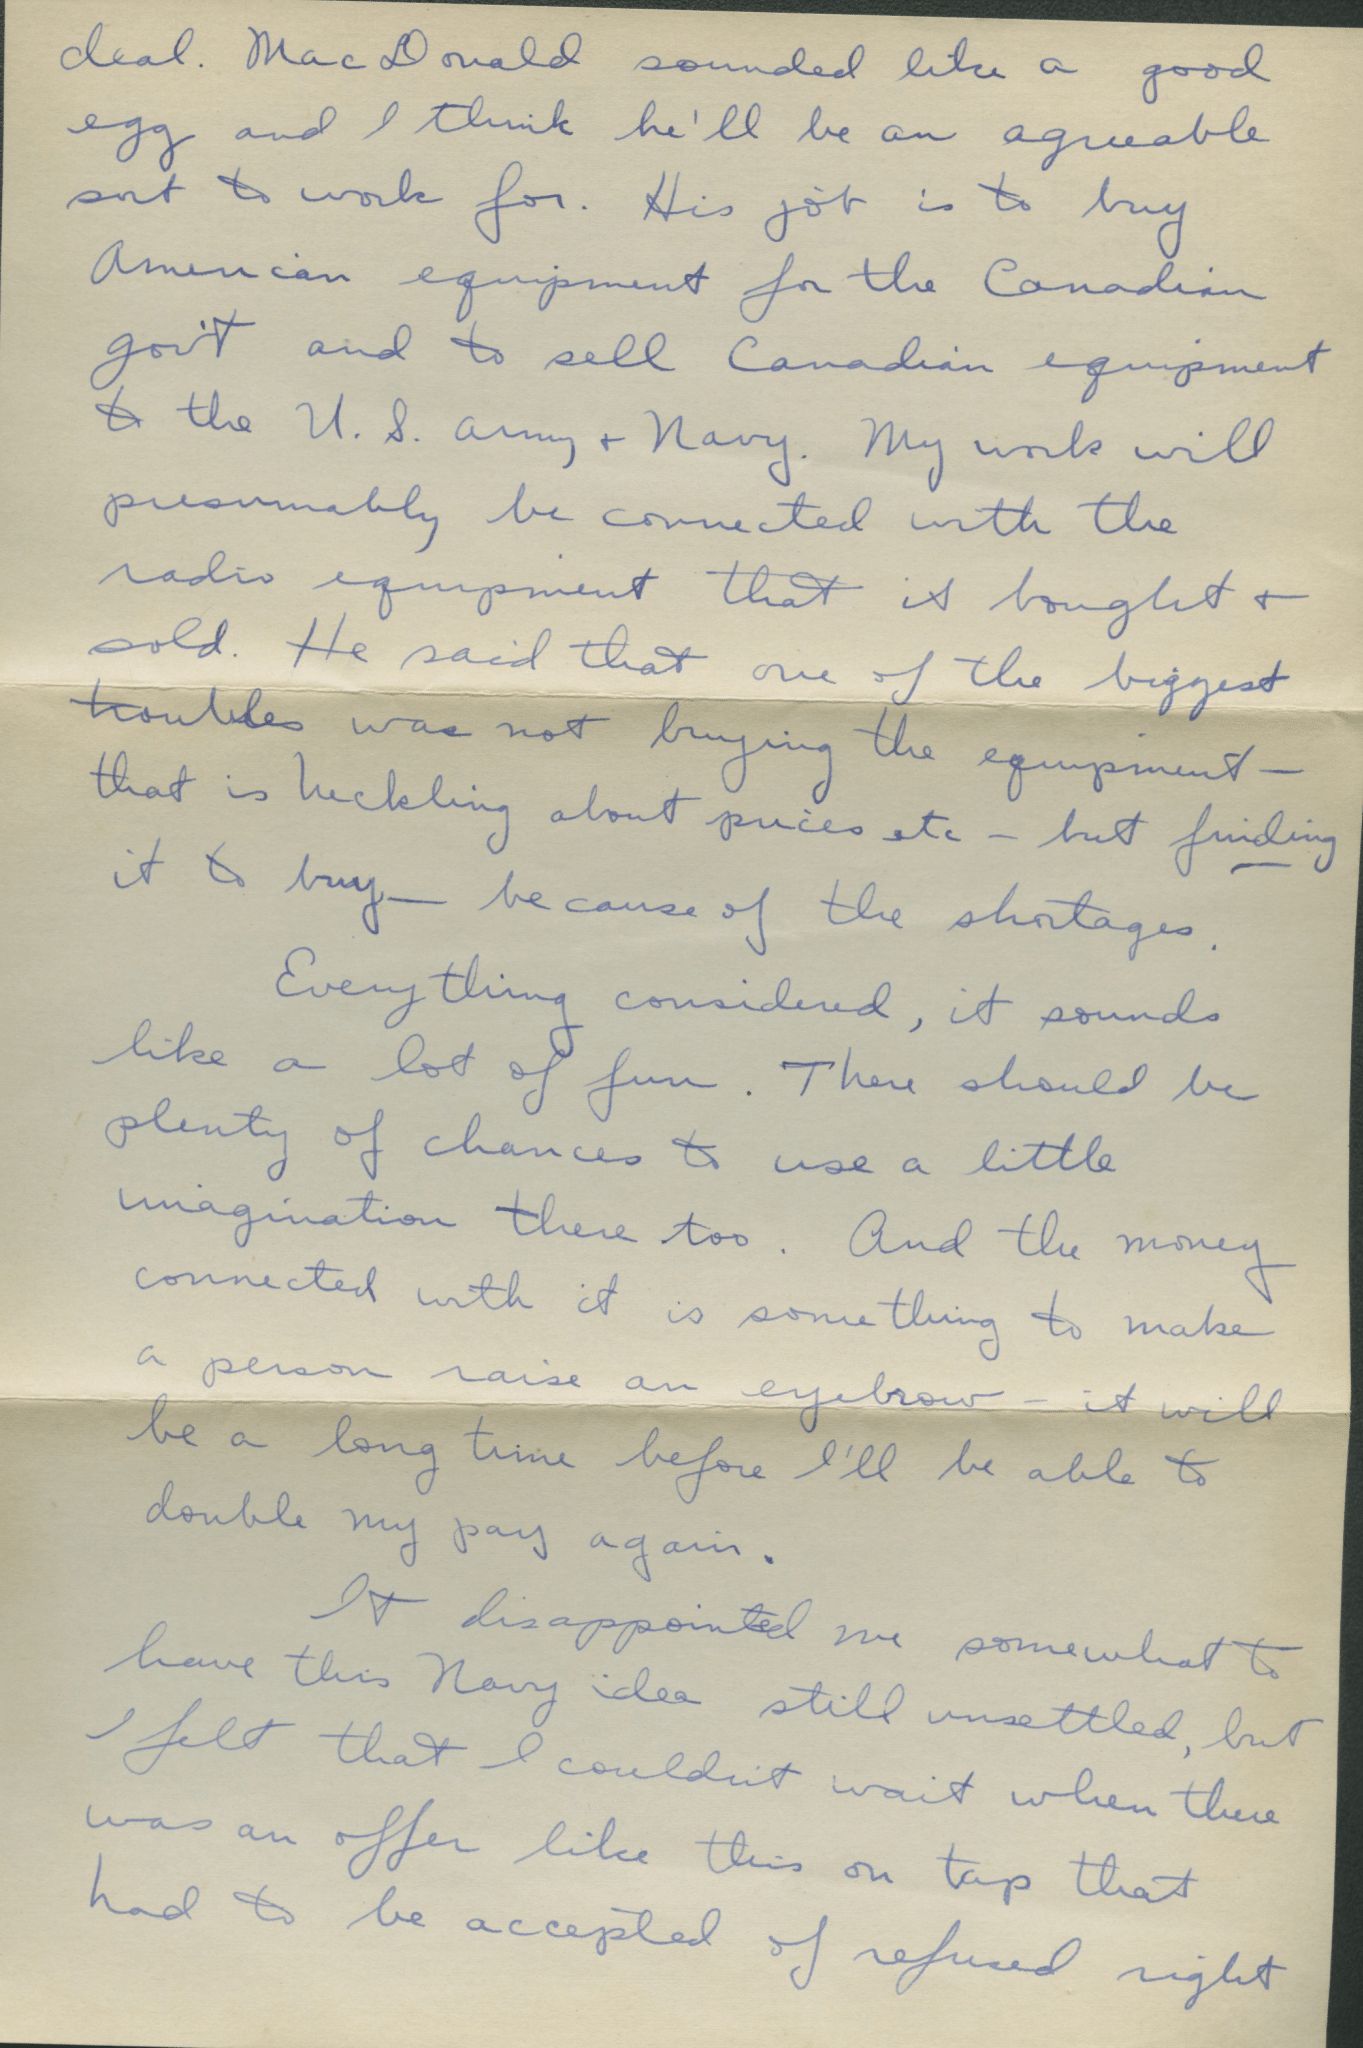 deal. MacDonald sounded like a good
egg and I think he'll be an agreeable
sort to work for. His job is to buy
American equipment for the Canadian
gov't and to sell Canadian equipment
to the U.S. Army & Navy. My work will
presumably be connected with the
radio equipment that is bought &
sold. He said that one of the biggest
troubles was not buying the equipment —
that is heckling about prices etc — but finding
it to buy — because of the shortages.
Everything considered, it sounds
like a lot of fun. There should be
plenty of chances to use a little
imagination there too. And the money
connected with it is something to make
a person raise an eyebrow — it will
be a long time before I'll be able to
double my pay again.
It disappointed me somewhat to
have this Navy idea still unsettled, but
I felt that I couldn't wait when there
was an offer like this on tap that
had to be accepted of refused right